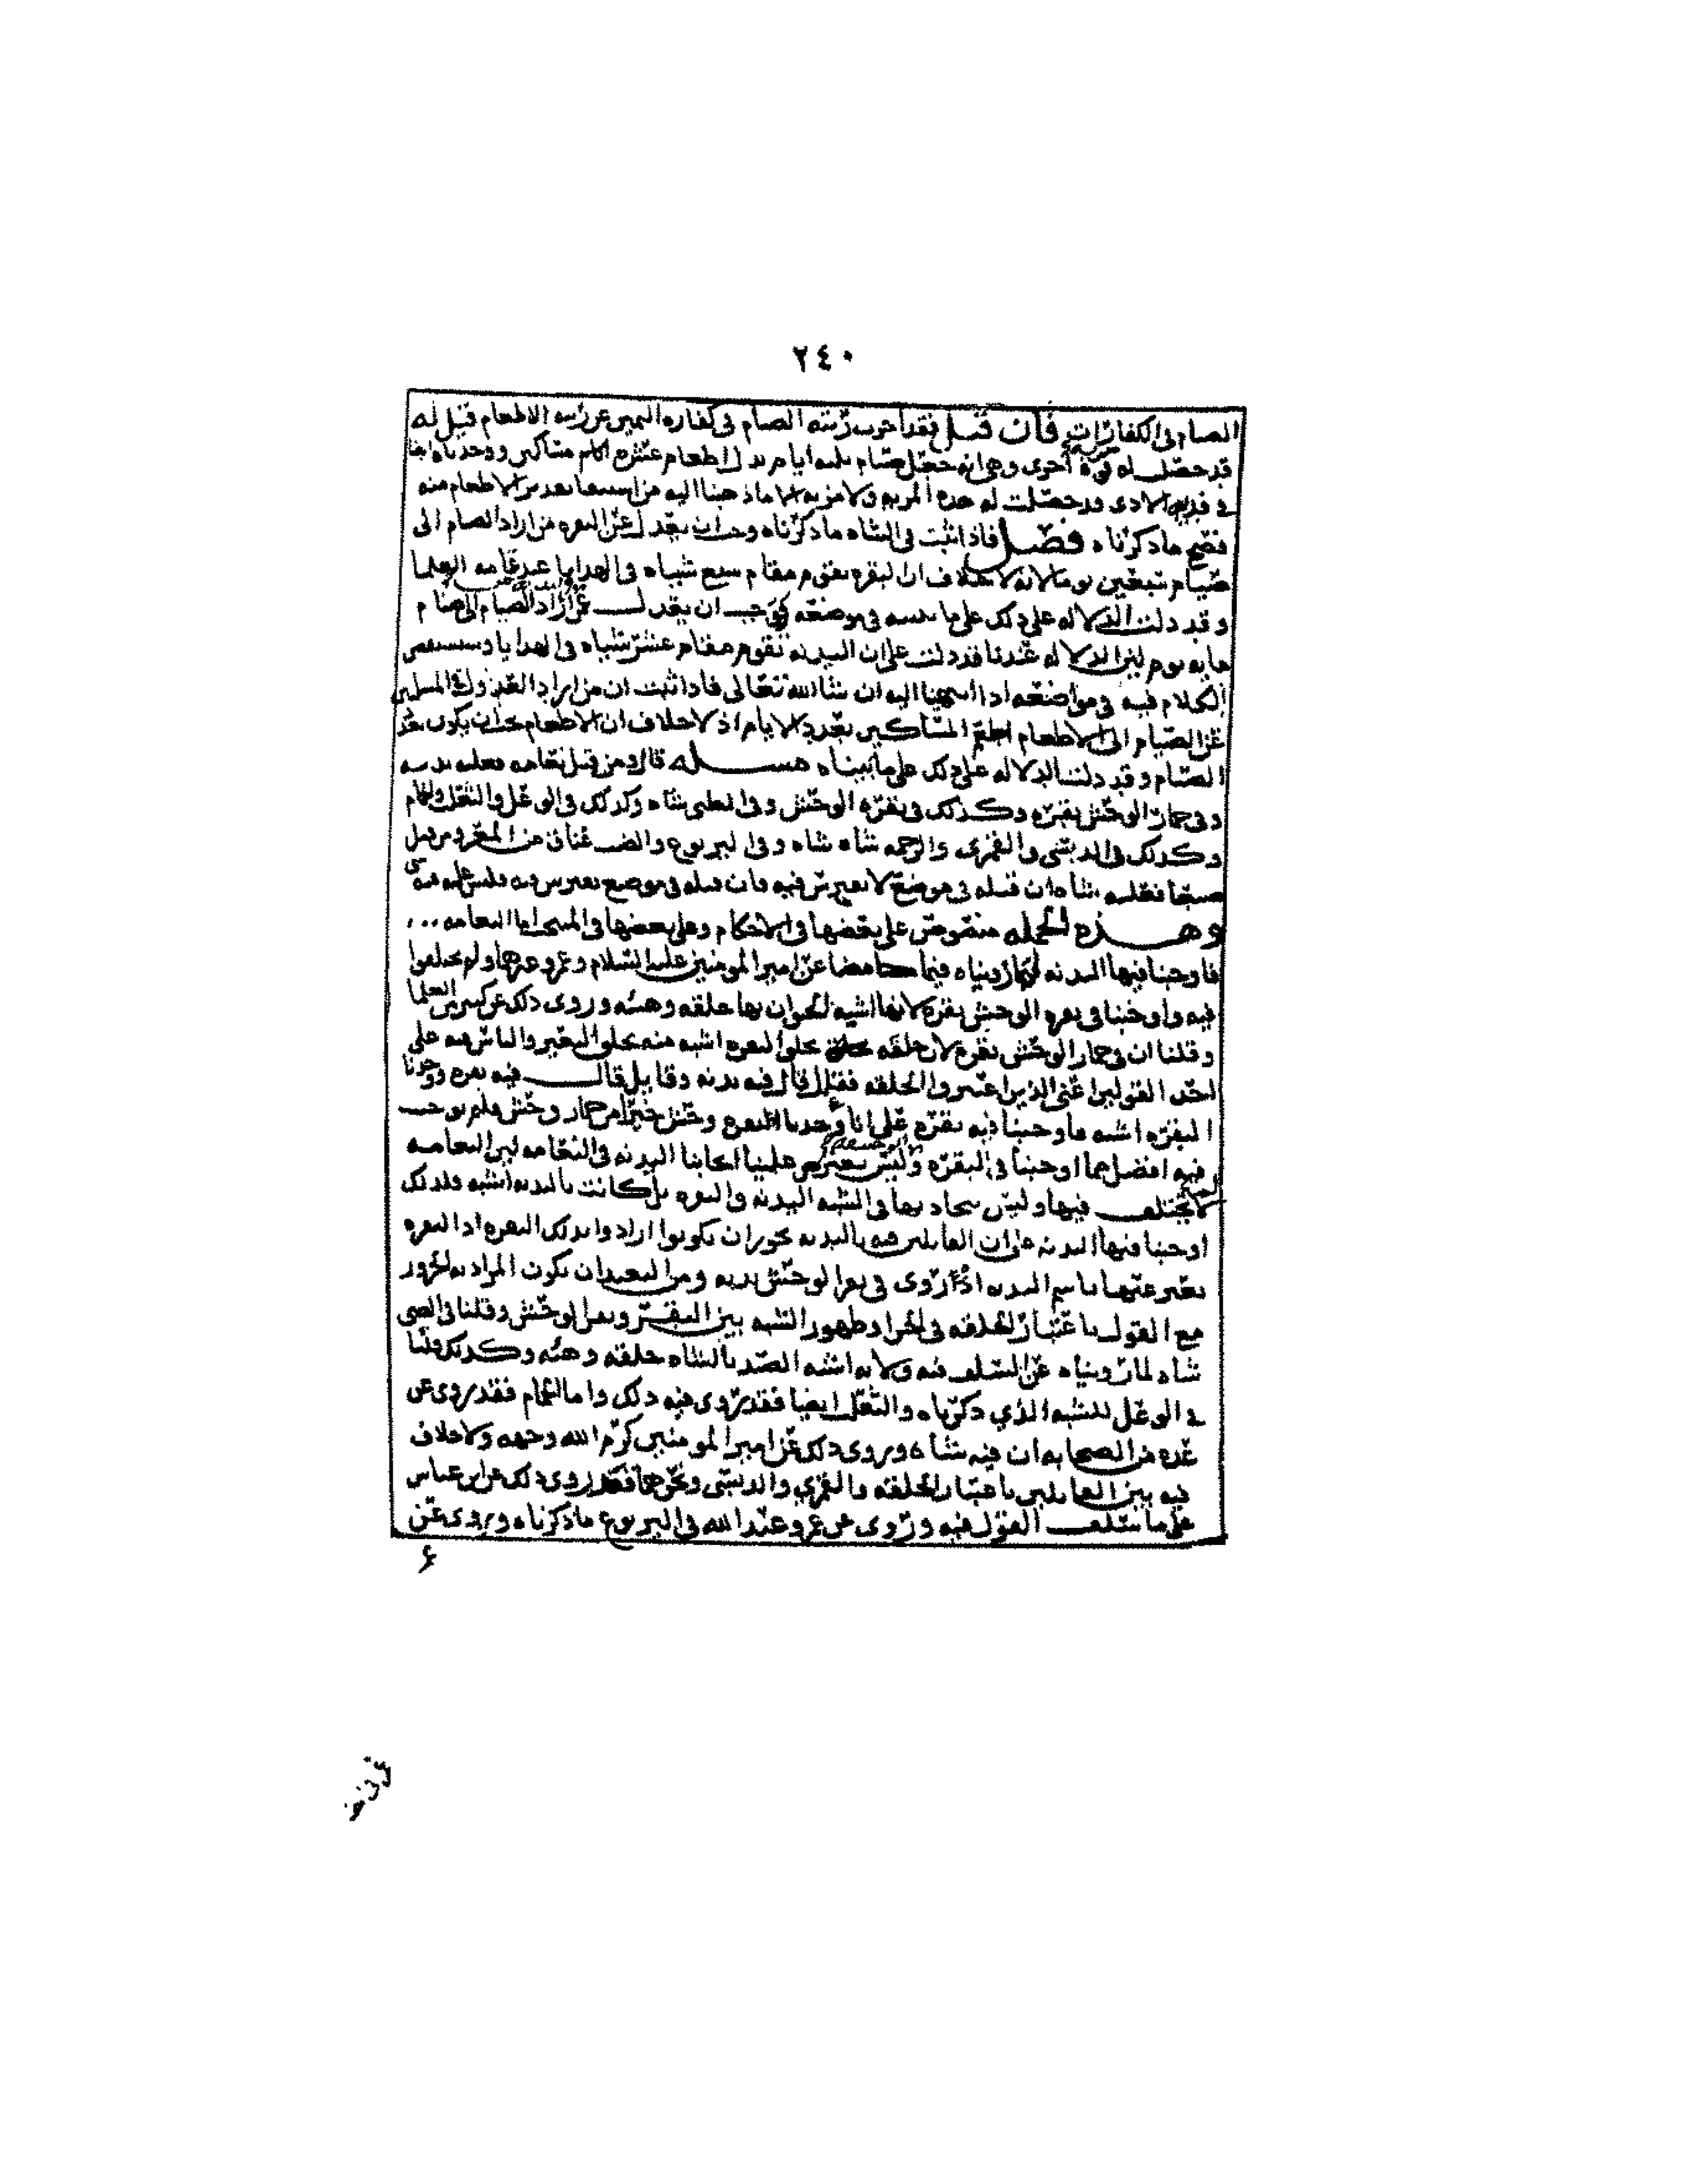 ٢٤٠
الصيام في الكفارات فان قيل فقد اخرت رتبه الصيام في كفاره اليمين عن رتبه الاطعام قيل له
قد حصل له مزيه اخرى وهي انه جعل صيام ثلثه ايام بدل اطعام عشره مساكين ووجدناه ايضا
في فديه الاذى قد حصلت له هذه المزيه ولا مزيه الا ما ذهبنا اليه من
فصح ما ذكرناه فصل فاذا ثبت في الشاه ما ذكرناه وجب ان يعدل عن البقره من اراد الصيام الى
صيام سبعين يوما لانه لا خلاف ان البقره تقوم مقام سبع شياه في الهدايا عند عامه العلما
وقد دلت الدلاله على ذلك على ما نبينه في موضعه فوجب ان يعدل من اراد الصيام الى صيام
مايه يوم لان الدلاله عندنا قد دلت على ان البدنه تقوم مقام عشر شياه في الهدايا وسنستقصي
الكلام فيه في مواضعه اذا انتهينا اليه ان شا الله تعالى فاذا ثبت ان من اراد العدول من المسلمين
عن الصيام الى الاطعام اطعم المساكين بعدد الايام اذ لا خلاف ان الاطعام يجب ان يكون بعدد
الصيام وقد دلت الدلاله على ذلك على ما بيناه مسله قال ومن قتل نعامه فعليه بدنه
وفي حمار الوحش بقره وكذلك في بقره الوحش وفي الظبي شاه وكذلك في الوعل والثعلب والحمام
وكذلك في الدبسي والقمري والرخمه شاه شاه وفي اليربوع والضب عناق من المعز ومن قتل
ضبعا فعليه شاه ان قتله في موضع لا يفترس فيه فان قتله في موضع يفترس فيه فليس عليه فيه شي
وهذه الجمله منصوص على بعضها في الاحكام وعلى بعضها في المنتخب اما النعامه
فاوجبنا فيها البدنه لما رويناه فيما مضا عن امير المومنين عليه السلام وعمر وغيرهما ولم يختلفوا
فيه واوجبنا في بقره الوحش بقره لانها اشبه الحيوان بها خلقه وهيئه وروي ذلك عن كثير من العلما
وقلنا ان في حمار الوحش بقره لان خلقه بخلق البقره اشبه منه بخلق البعير والناس فيه على
احد القولين اعني الذين اعتبروا الخلقه فقايل قال فيه بدنه وقايل قال فيه بقره ووجدنا
البقره اشبه فاوجبنا فيه بقره على انا وجدنا البقره وحش خيرا من حمار وحش فلم نوجب
فيه افضل مما اوجبنا في البقره الوحشيه وليس يعترض علينا ايجابنا البدنه في النعامه لان النعامه
لا يختلف فيها وليس يتجاذبها في الشبه البدنه والبقره بل كانت بالبدنه اشبه فلذلك
اوجبنا فيها البدنه على ان القايلين فيه بالبدنه يجوز ان يكونوا ارادوا بذلك البقره اذ البقره
يعبر عنها باسم البدنه اذ روي في بقر الوحش بدنه ومن البعيد ان يكون المراد به الجزور
مع القول باعتبار الخلقه في الجزا وظهور الشبه بين البقر وبقر الوحش وقلنا في الظبي
شاه لما رويناه عن السلف فيه ولانه اشبه الصيد بالشاه خلقه وهيئه وكذلك قلنا
في الوعل للشبه الذي ذكرناه والثعلب ايضا فقد روي فيه ذلك واما الحمام فقد روي عن
عده من الصحابه ان فيه شاه وروي ذلك عن امير المومنين كرم الله وجهه ولا خلاف
فيه بين القايلين باعتبار الخلقه والقمري والدبسي ونحوهما فقد روي ذلك عن ابن عباس
على ما سلف القول فيه وروي عن عمر وعبد الله في اليربوع ما ذكرناه وروي عن